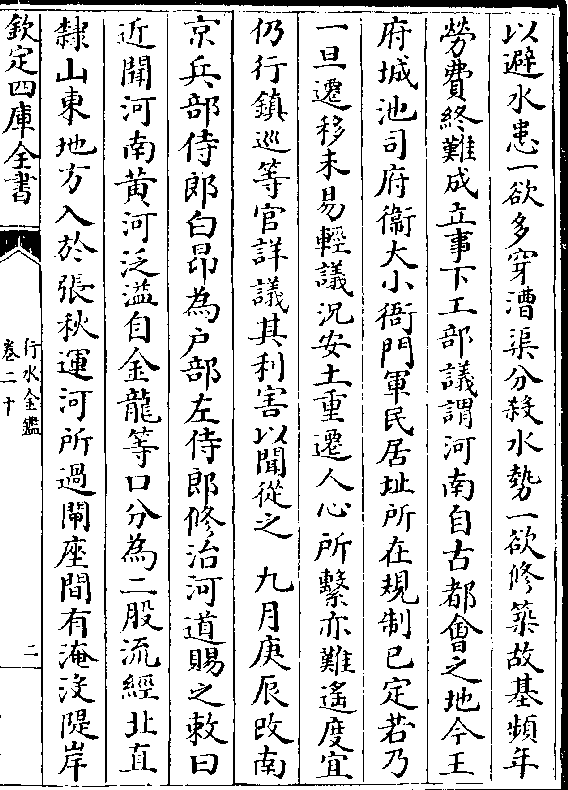 以避水患一欲多穿漕渠分殺水勢一欲修築故基頻年
勞費終難成立事下工部議謂河南自古都會之地今王
府城池司府衞大小衙門軍民居址所在規制已定若乃
一旦遷移未易輕議況安土重遷人心所繫亦難遙度宜
仍行鎮巡等官詳議其利害以聞從之 九月庚辰改南
京兵部侍郎白昂為户部左侍郎修治河道賜之敕曰
近聞河南黄河泛溢自金龍等口分為二股流經北直
隸山東地方入於張秋運河所過閘座間有淹没隄岸
欽定四庫全書
行水金鑑
卷二十
二